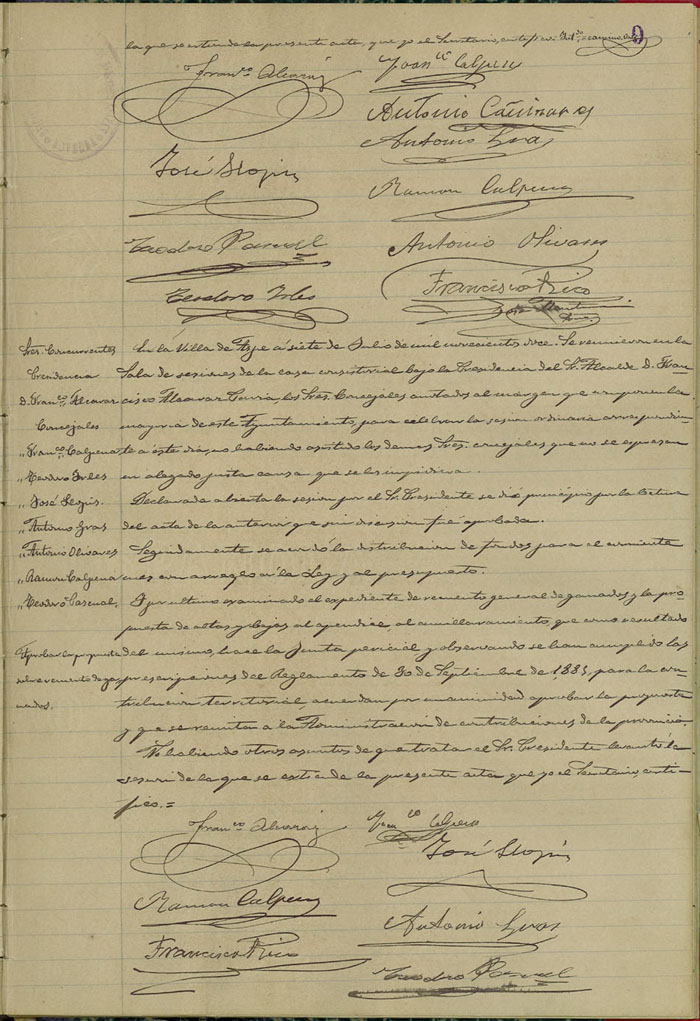 la que se extiende la presente acta, que yo el Secretario, certifico.
Fran.co Alcaraz
Fran.co Calpena
Antonio Cañizares
Antonio Gras
José Slopis
Ramon Calpena
Teodoro Pascual
Antonio Olivares
Teodoro Irles
Francisco Rico
Sres. Concurrentes
Presidencia
D. Fran.co Alcaraz
Concejales
" Fran.co Calpena
" Teodoro Irles
" José Slopis
" Antonio Gras
" Antonio Olivares
" Ramon Calpena
" Teodoro Pascual
Aprobar la propuesta
sobre recuento de ga-
nados.
En la Villa de Aspe á siete de Julio de mil novecientos doce. Se reunieron en la
Sala de sesiones de la casa consistorial bajo la Presidencia del Sr. Alcalde D. Fran-
cisco Alcaraz los Sres. Concejales anotados al margen que componen la
mayoria de este Ayuntamiento, para celebrar la sesion ordinaria correspondien-
te a este dia, no habiendo asistido los demas Sres. concejales que no se expresan
ni alegado justa causa que se los impidiera.
Declarada abierta la sesion por el Sr. Presidente se dió principio por la lectura
del acta de la anterior que sin discusion fué aprobada.
Segundamente se acordó la distribucion de fondos para el corriente
mes con arreglo á la Ley y al presupuesto.
Y por ultimo examinado el expediente de recuento general de ganados y la pro-
puesta de altas y bajas al apendice, al amillaramiento, que como resultado
del mismo, hace la Junta pericial y observando se han cumplido las
prescripciones del Reglamento de 30 de Septiembre de 1885, para la con-
tribucion territorial, acuerdan por unanimidad aprobar la propuesta
y que se remita a la Administración de contribuciones de la provincia.
No habiendo otros asuntos de que tratar el Sr. Presidente levantó la
sesion de la que se extiende la presente acta que yo el Secretario, certi-
fico.=
Fran.co Alcaraz
Fran.co Calpena
José Slopis
Ramon Calpena
Antonio Gras
Francisco Rico
Teodoro Pascual